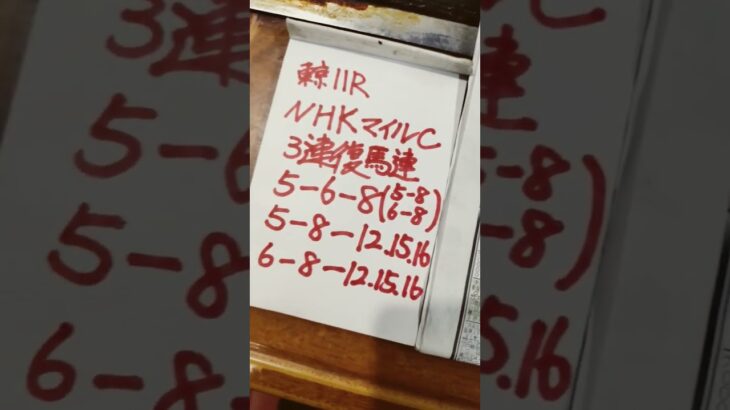 東京11R
NHKマイルC
3連復馬連
5-6-8(5-8
6-8)
5-8-12.15.16
6-8-12.15.16